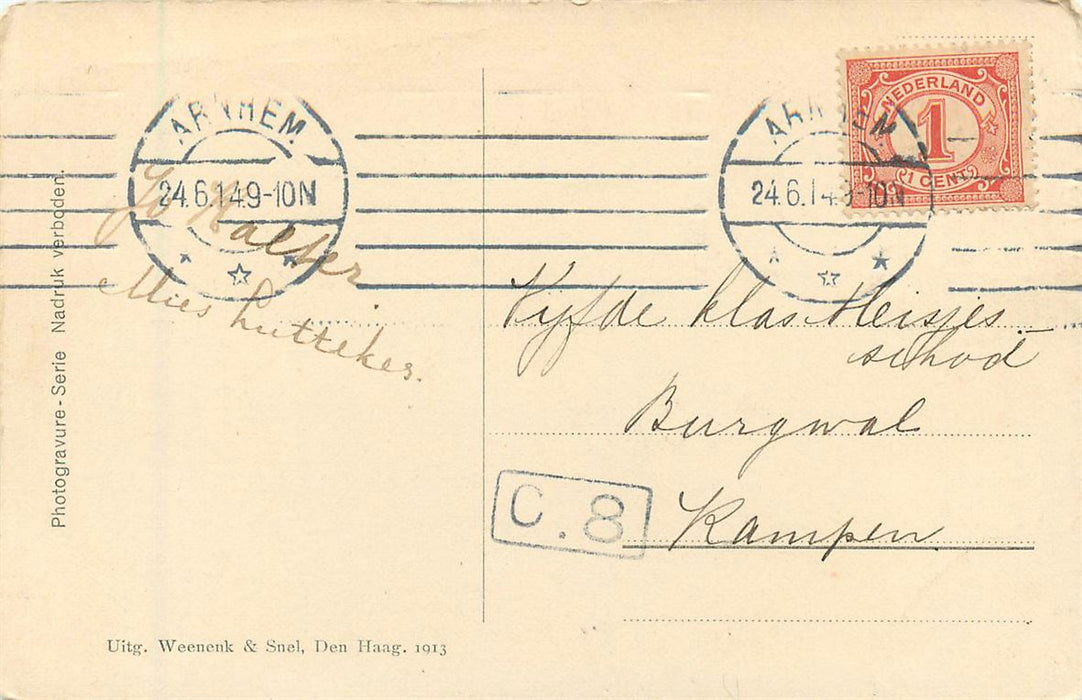 NEDERLAND
1
1 CENT
ARNHEM
24.6.14 9-10N
ARNHEM
24.6.14 9-10N
Jo Kalter
Mies Luttekes.
Vijfde klas Meisjes
school
Burgwal
Kampen
C.8
Photogravure-Serie Nadruk verboden.
Uitg. Weenenk & Snel, Den Haag. 1913